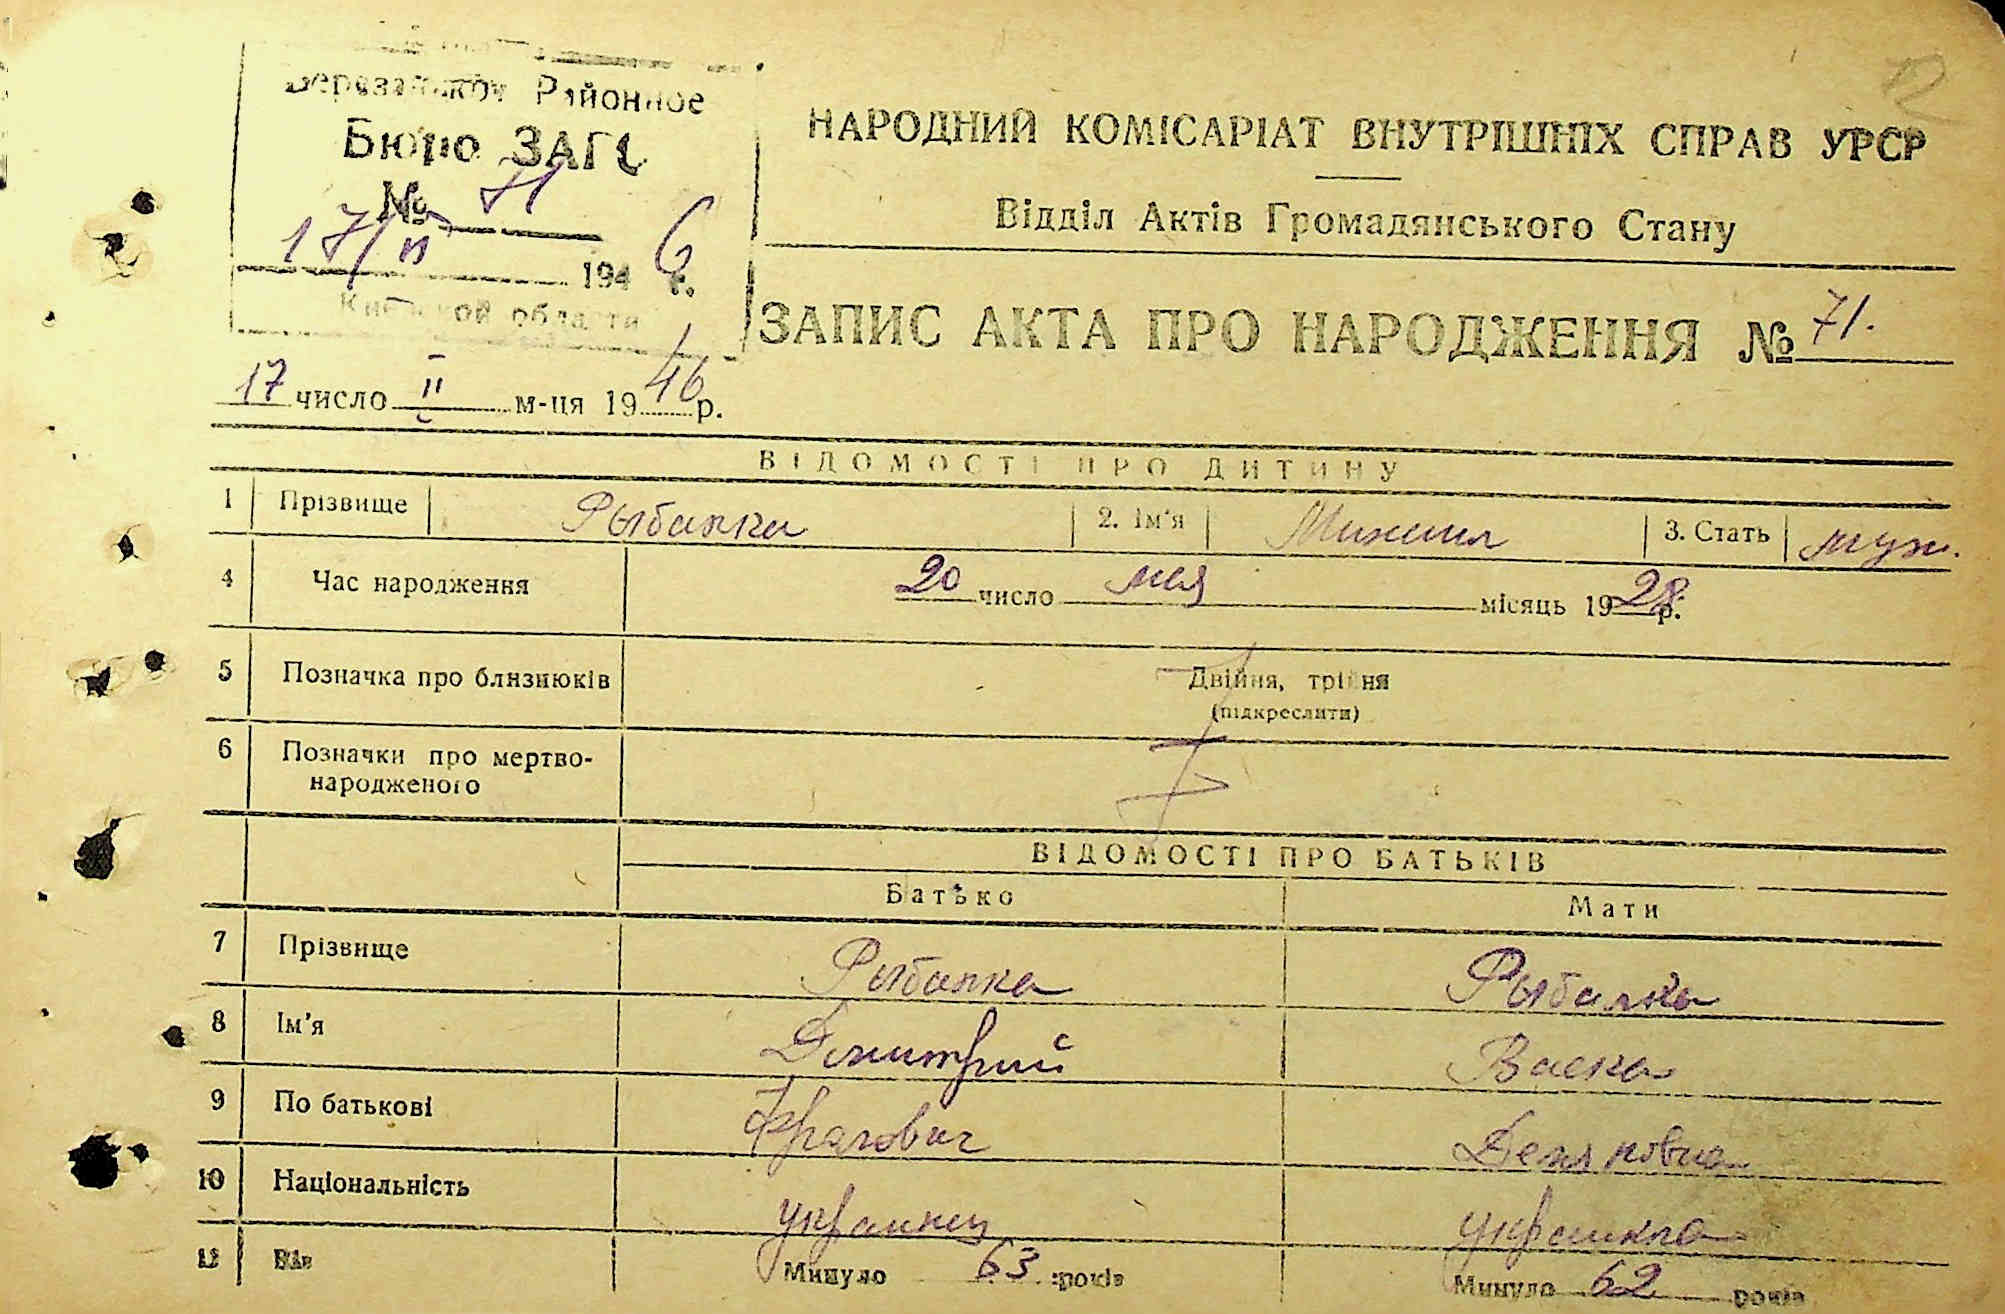 Районное
Бюро ЗАГС
№ 71
17/II 1946 г.
Киевской области
НАРОДНИЙ КОМІСАРІАТ ВНУТРІШНІХ СПРАВ УРСР
Відділ Актів Громадянського Стану
ЗАПИС АКТА ПРО НАРОДЖЕННЯ № 71.
17 число II м-ця 1946 р.
ВІДОМОСТІ ПРО ДИТИНУ
1 Прізвище Рыбалка 2. Ім'я Михаил 3. Стать муж.
4 Час народження 20 число мая місяць 1928 р.
5 Позначка про близнюків Двійня, трійня
(підкреслити)
6 Позначки про мертво-
народженого
ВІДОМОСТІ ПРО БАТЬКІВ
Батько Мати
7 Прізвище Рыбалка Рыбалка
8 Ім'я Дмитрий
9 По батькові
10 Національність украинец украинка
11 Вік Минуло 63 років Минуло 62 років